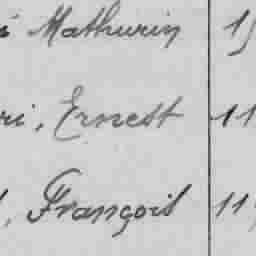 Mathurin
ri, Ernest 11
, François 11